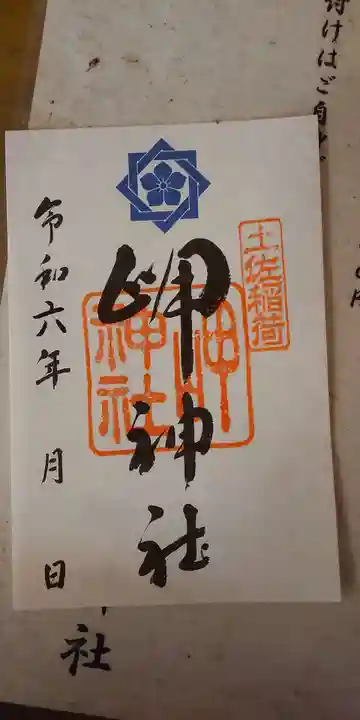 付けはご自
土佐稲荷
岬神社
岬神社
令和六年 月 日
社